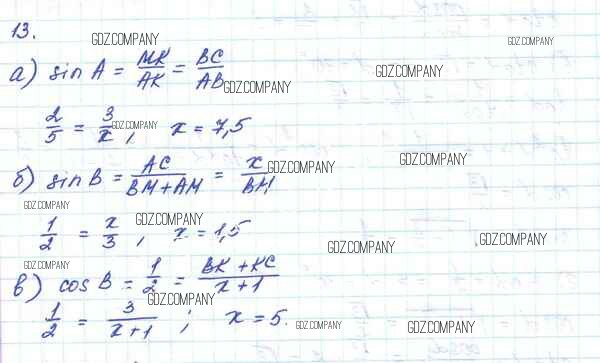 13.
GDZ.COMPANY
GDZ.COMPANY
а) sin A = MK/AK = BC/AB
GDZ.COMPANY
GDZ.COMPANY
2/5 = 3/x, x = 7,5
GDZ.COMPANY
б) sin B = AC/BM+AM = x/BM
GDZ.COMPANY
GDZ.COMPANY
GDZ.COMPANY
GDZ.COMPANY
1/2 = x/3, x = 1,5
GDZ.COMPANY
GDZ.COMPANY
GDZ.COMPANY
в) cos B = 1/2 = BK+KC/x+1
GDZ.COMPANY
1/2 = 3/x+1; x = 5.
GDZ.COMPANY
GDZ.COMPANY